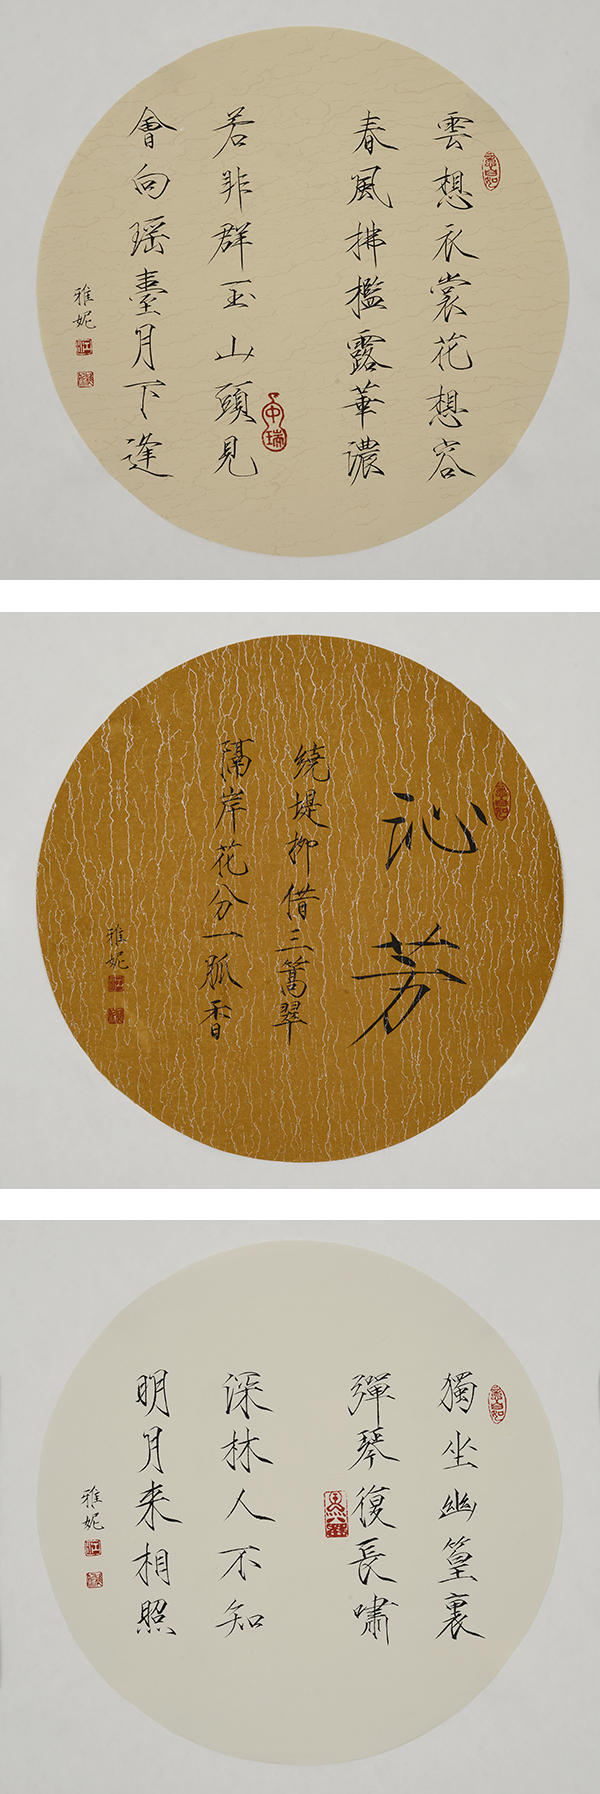 雲想衣裳花想容
春風拂檻露華濃
若非群玉山頭見
會向瑶臺月下逢
雅妮
沁芳
绕堤柳借三篙翠
隔岸花分一脈香
雅妮
獨坐幽篁裏
彈琴復長嘯
深林人不知
明月来相照
雅妮